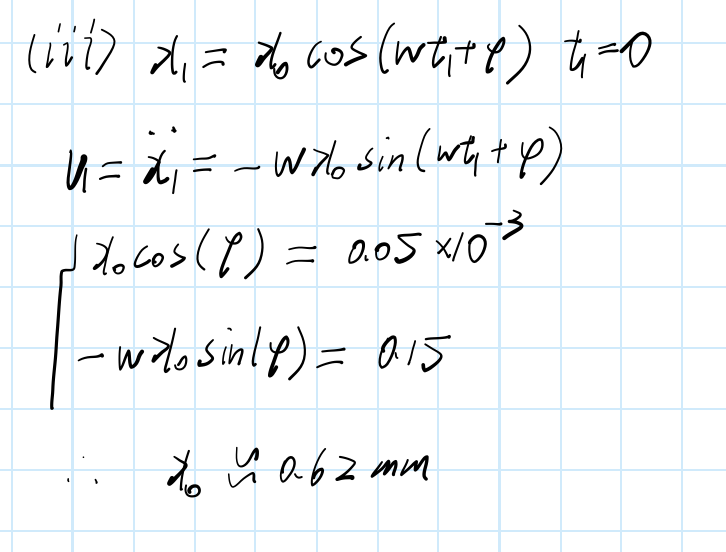 (iii) x₁ = x₀ cos(wt₁+φ) t₁=0
u₁ = ẍ₁ = -wx₀ sin(wt₁+φ)
x₀cos(φ) = 0.05×10⁻³
-wx₀sin(φ) = 0.15
∴ x₀ ≈ 0.62 mm